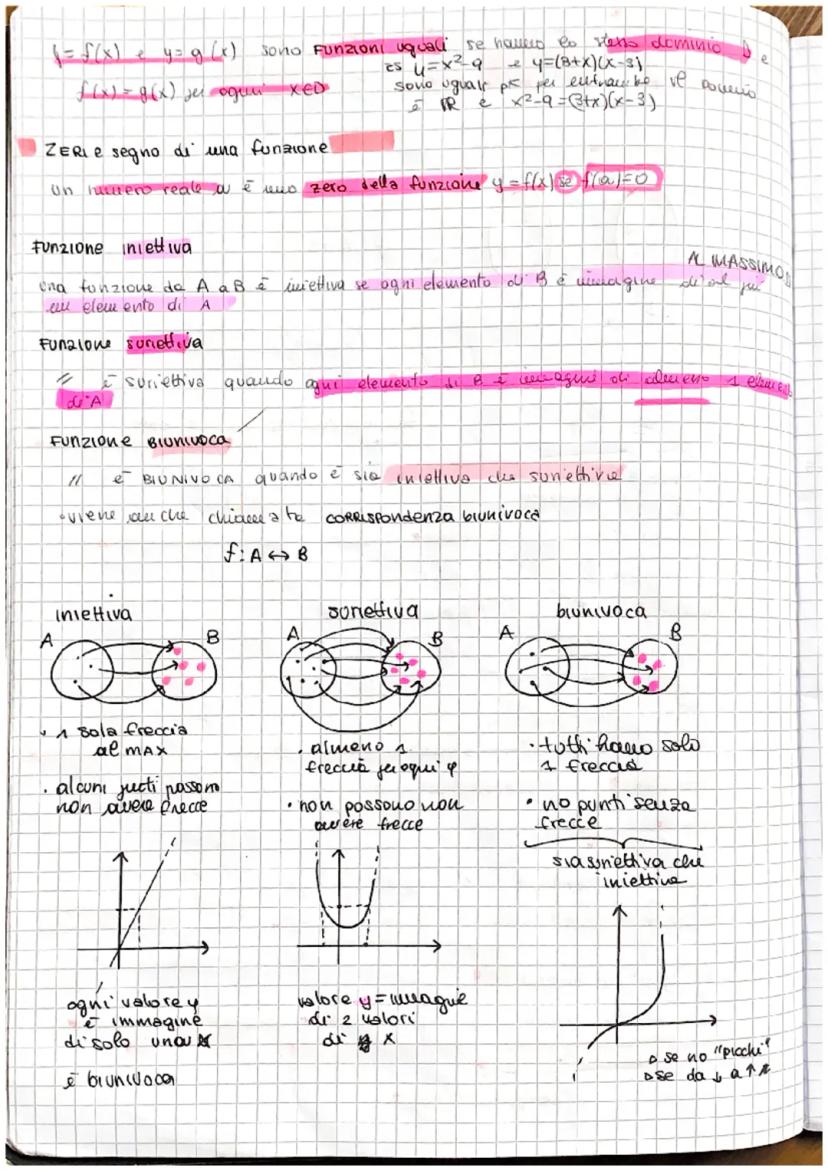 y=f(x) e y=g(x) sono FUNZIONI uguali se hanno lo stesso dominio D e
f(x)=g(x) per ogni x∈D
es y=x²-9 e y=(3+x)(x-3)
sono uguali pk per entrambe il dominio
è ℝ e x²-9=(3+x)(x-3)
ZERI e segno di una funzione
un numero reale a è uno zero della funzione y=f(x) se f(a)=0
FUNZIONE iniettiva
AL MASSIMO
una funzione da A a B è iniettiva se ogni elemento di B è immagine di al più
un elemento di A
FUNZIONE suriettiva
// è suriettiva quando ogni elemento di B è immagine di almeno 1 element
di A
FUNZIONE BIUNIVOCA
// è BIUNIVOCA quando è sia iniettiva che suriettiva
•viene anche chiamata CORRISPONDENZA biunivoca
f: A ↔ B
iniettiva
A B
• 1 sola freccia
al MAX
• alcuni punti possono
non avere frecce
ogni valore y
è immagine
di solo una x
è biunivoca
suriettiva
A B
• almeno 1
freccia per ogni φ
• non possono non
avere frecce
valore y = immagine
di 2 valori
di x
biunivoca
A B
• tutti hanno solo
1 freccia
• no punti senza
frecce
sia suriettiva che
iniettiva
▹ se no "picchi"
▹ se da ↓ a ↑